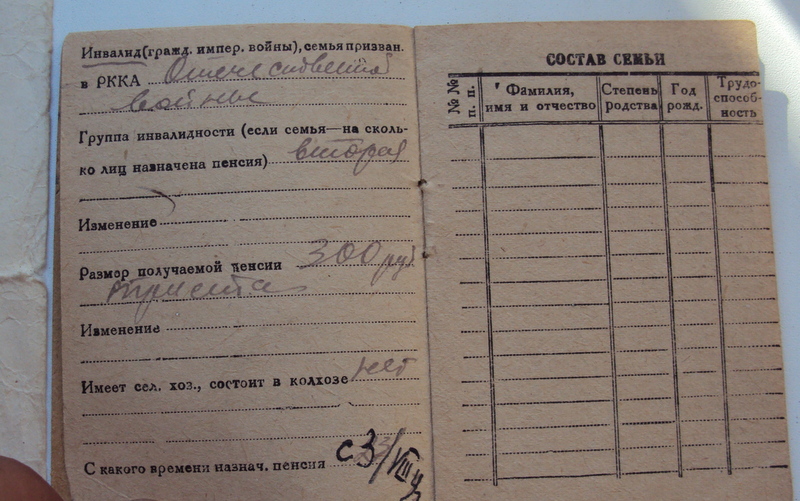 Инвалид (гражд. импер. войны), семья призван.
в РККА Отечественной
войны
Группа инвалидности (если семья—на сколь-
ко лиц назначена пенсия) вторая
Изменение
Размер получаемой пенсии 300 руб
триста
Изменение
Имеет сел. хоз., состоит в колхозе нет
С какого времени назнач. пенсия с 3/VIII
СОСТАВ СЕМЬИ
№№ п. п.
Фамилия, имя и отчество
Степень родства
Год рожд.
Трудо-способ-ность